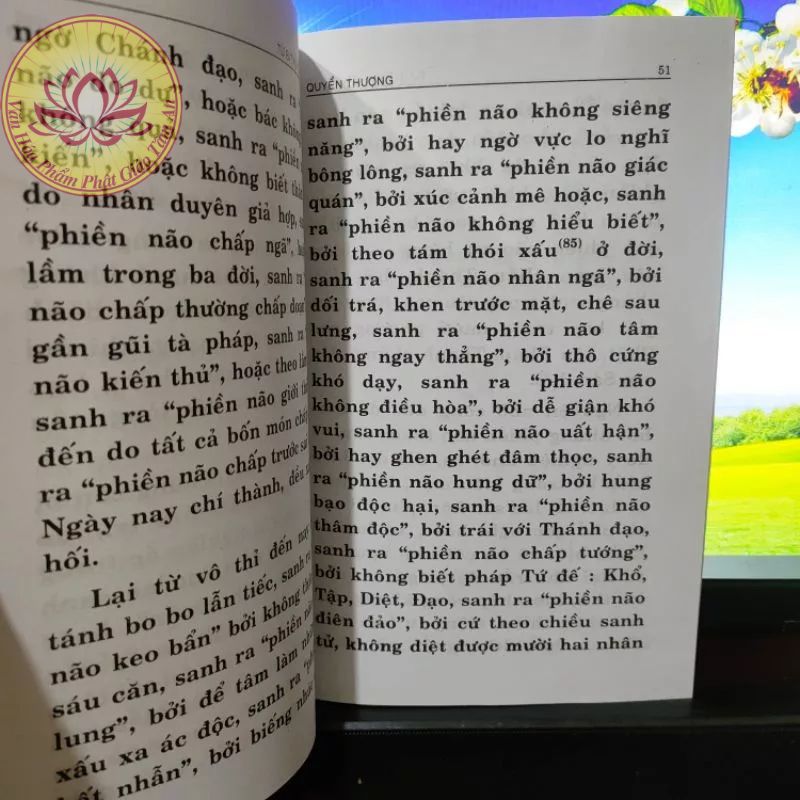 Văn Hóa Phẩm Phật Giáo Tâm An
ngờ Chánh đạo, sanh ra
não do dự”, hoặc bác
không sanh ra “phiền
hoặc không biết
do nhân duyên giả hợp,
“phiền não chấp ngã”,
lầm trong ba đời, sanh ra
não chấp thường chấp đoạn
gần gũi tà pháp, sanh ra
não kiến thủ”, hoặc theo
sanh ra “phiền não giới
đến do tất cả bốn món chấp
ra “phiền não chấp trước
Ngày nay chí thành, đều
hối.
Lại từ vô thỉ đến nay
tánh bo bo lẫn tiếc, sanh ra
não keo bẩn” bởi không
sáu căn, sanh ra “phiền não
lung”, bởi để tâm làm
xấu xa ác độc, sanh ra
nhẫn”, bởi biếng nhác
QUYỂN THƯỢNG 51
sanh ra “phiền não không siêng
năng”, bởi hay ngờ vực lo nghĩ
bông lông, sanh ra “phiền não giác
quán”, bởi xúc cảnh mê hoặc, sanh
ra “phiền não không hiểu biết”,
bởi theo tám thói xấu(85) ở đời,
sanh ra “phiền não nhân ngã”, bởi
dối trá, khen trước mặt, chê sau
lưng, sanh ra “phiền não tâm
không ngay thẳng”, bởi thô cứng
khó dạy, sanh ra “phiền não
không điều hòa”, bởi dễ giận khó
vui, sanh ra “phiền não uất hận”,
bởi hay ghen ghét đâm thọc, sanh
ra “phiền não hung dữ”, bởi hung
bạo độc hại, sanh ra “phiền não
thâm độc”, bởi trái với Thánh đạo,
sanh ra “phiền não chấp tướng”,
bởi không biết pháp Tứ đế : Khổ,
Tập, Diệt, Đạo, sanh ra “phiền não
điên đảo”, bởi cứ theo chiều sanh
tử, không diệt được mười hai nhân